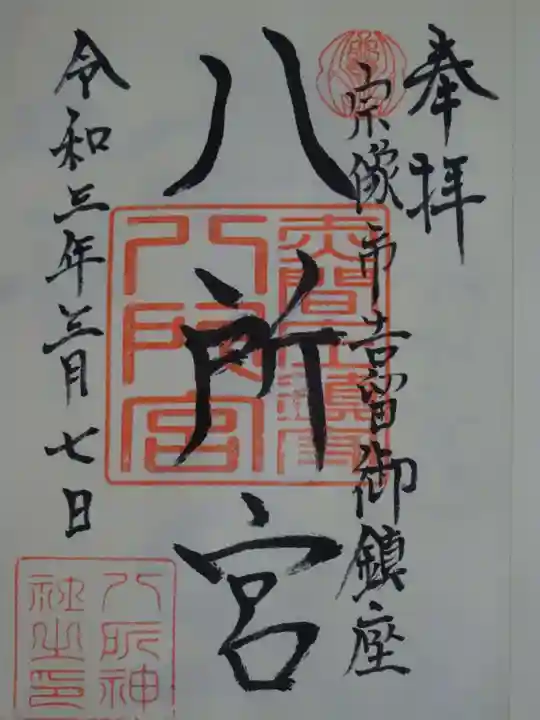 奉拝
宗像市吉留御鎮座
八所宮
令和三年三月七日
八所宮
八所神
社之印